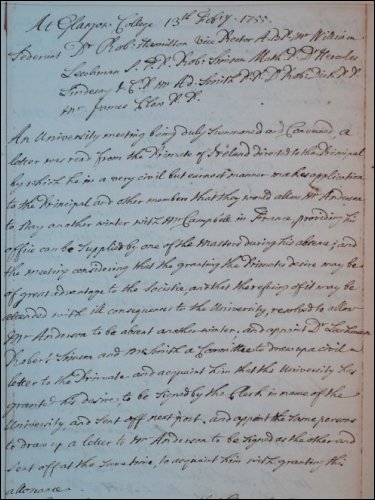 At Glasgow College 13th Febry. 1755.
Sederunt Dr Rob: Hamilton Vice Rector A.B.P. Mr William
Leechman S.T.P. Rob: Simson Math. P. Dr Hercules
Lindesay J.C.P. Mr Ad: Smith P.P. Dr Rob: Dick P.P.
Mr James Clow P.P.
An University meeting being duly Summoned and Conveened, a
letter was read from the Primate of Ireland directed to the Principal
by which he in a very civil but earnest manner makes application
to the Principal and other members that they would allow Mr Anderson
to stay another winter with Mr Campbell in France, providing his
office can be supplied by one of the Masters during his absence; and
the meeting considering that the granting the Primates desire may be
of great advantage to the Societie, and that the refusing of it may be
attended with ill consequences to the University, resolved to allow
Mr Anderson to be absent another winter, and appoint Dr Leechman
Robert Simson and Mr Smith a Committee to draw up a civil
letter to the Primate and acquaint him that the University has
granted his desire, to be signed by the Clerk in name of the
University and sent off next post, and appoint the same persons
to draw up a letter to Mr Anderson to be signed as the other and
sent off at the same time, to acquaint him with granting this
allowance.